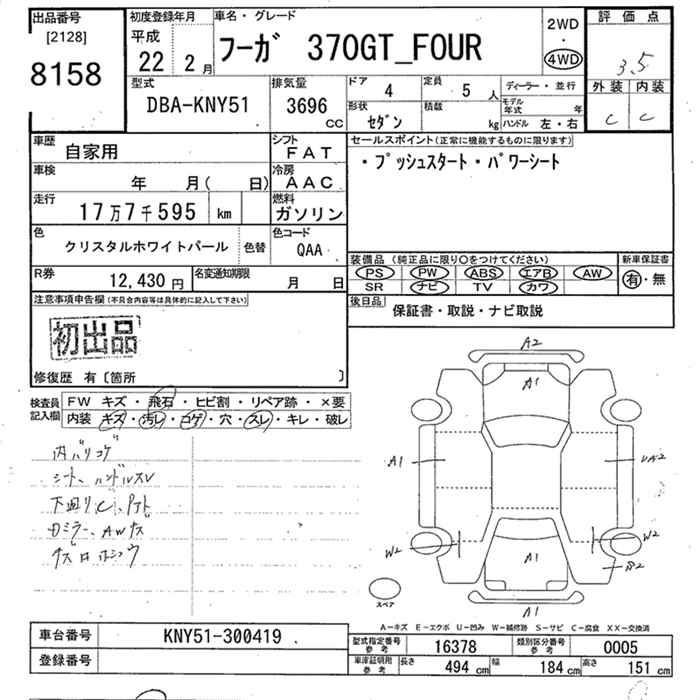 出品番号
[2128]
8158
初度登録年月
平成
22 2月
車名・グレード
フーガ 370GT_FOUR
2WD
・
4WD
評価点
3.5
外装 内装
C C
型式
DBA-KNY51
排気量
3696
CC
ドア 4
定員 5人
ディーラー・並行
形状 セダン
積載 kg
モデル年式 年
ハンドル 左・右
車歴
自家用
シフト
FAT
セールスポイント(正常に機能するものに限ります)
・プッシュスタート・パワーシート
車検
年 月( 日)
冷房
AAC
走行
17万7千595 km
燃料
ガソリン
色
クリスタルホワイトパール
色替
色コード
QAA
装備品(純正品に限り○をつけてください)
新車保証書
PS PW ABS エアB AW
SR ナビ TV カワ
有・無
R券
12,430円
名変通知期限
月 日
後日品
保証書・取説・ナビ取説
注意事項申告欄(不具合内容等は具体的に記入して下さい)
初出品
修復歴 有〔箇所 〕
検査員記入欄
FW キズ・飛石・ヒビ割・リペア跡・×要
内装 キズ・汚レ・コゲ・穴・スレ・キレ・破レ
内バリコゲ
シート、ハンドルスレ
下廻りC、
ミラー、AWキズ
A2
A1
A1
W2
W2
A1
A1
スペア
A-キズ E-エクボ U-凹み W-補修跡 S-サビ C-腐食 XX-交換済
車台番号
KNY51-300419
登録番号
型式指定番号 参考
16378
類別区分番号 参考
0005
車庫証明用 参考
長さ 494cm
幅 184cm
高さ 151cm